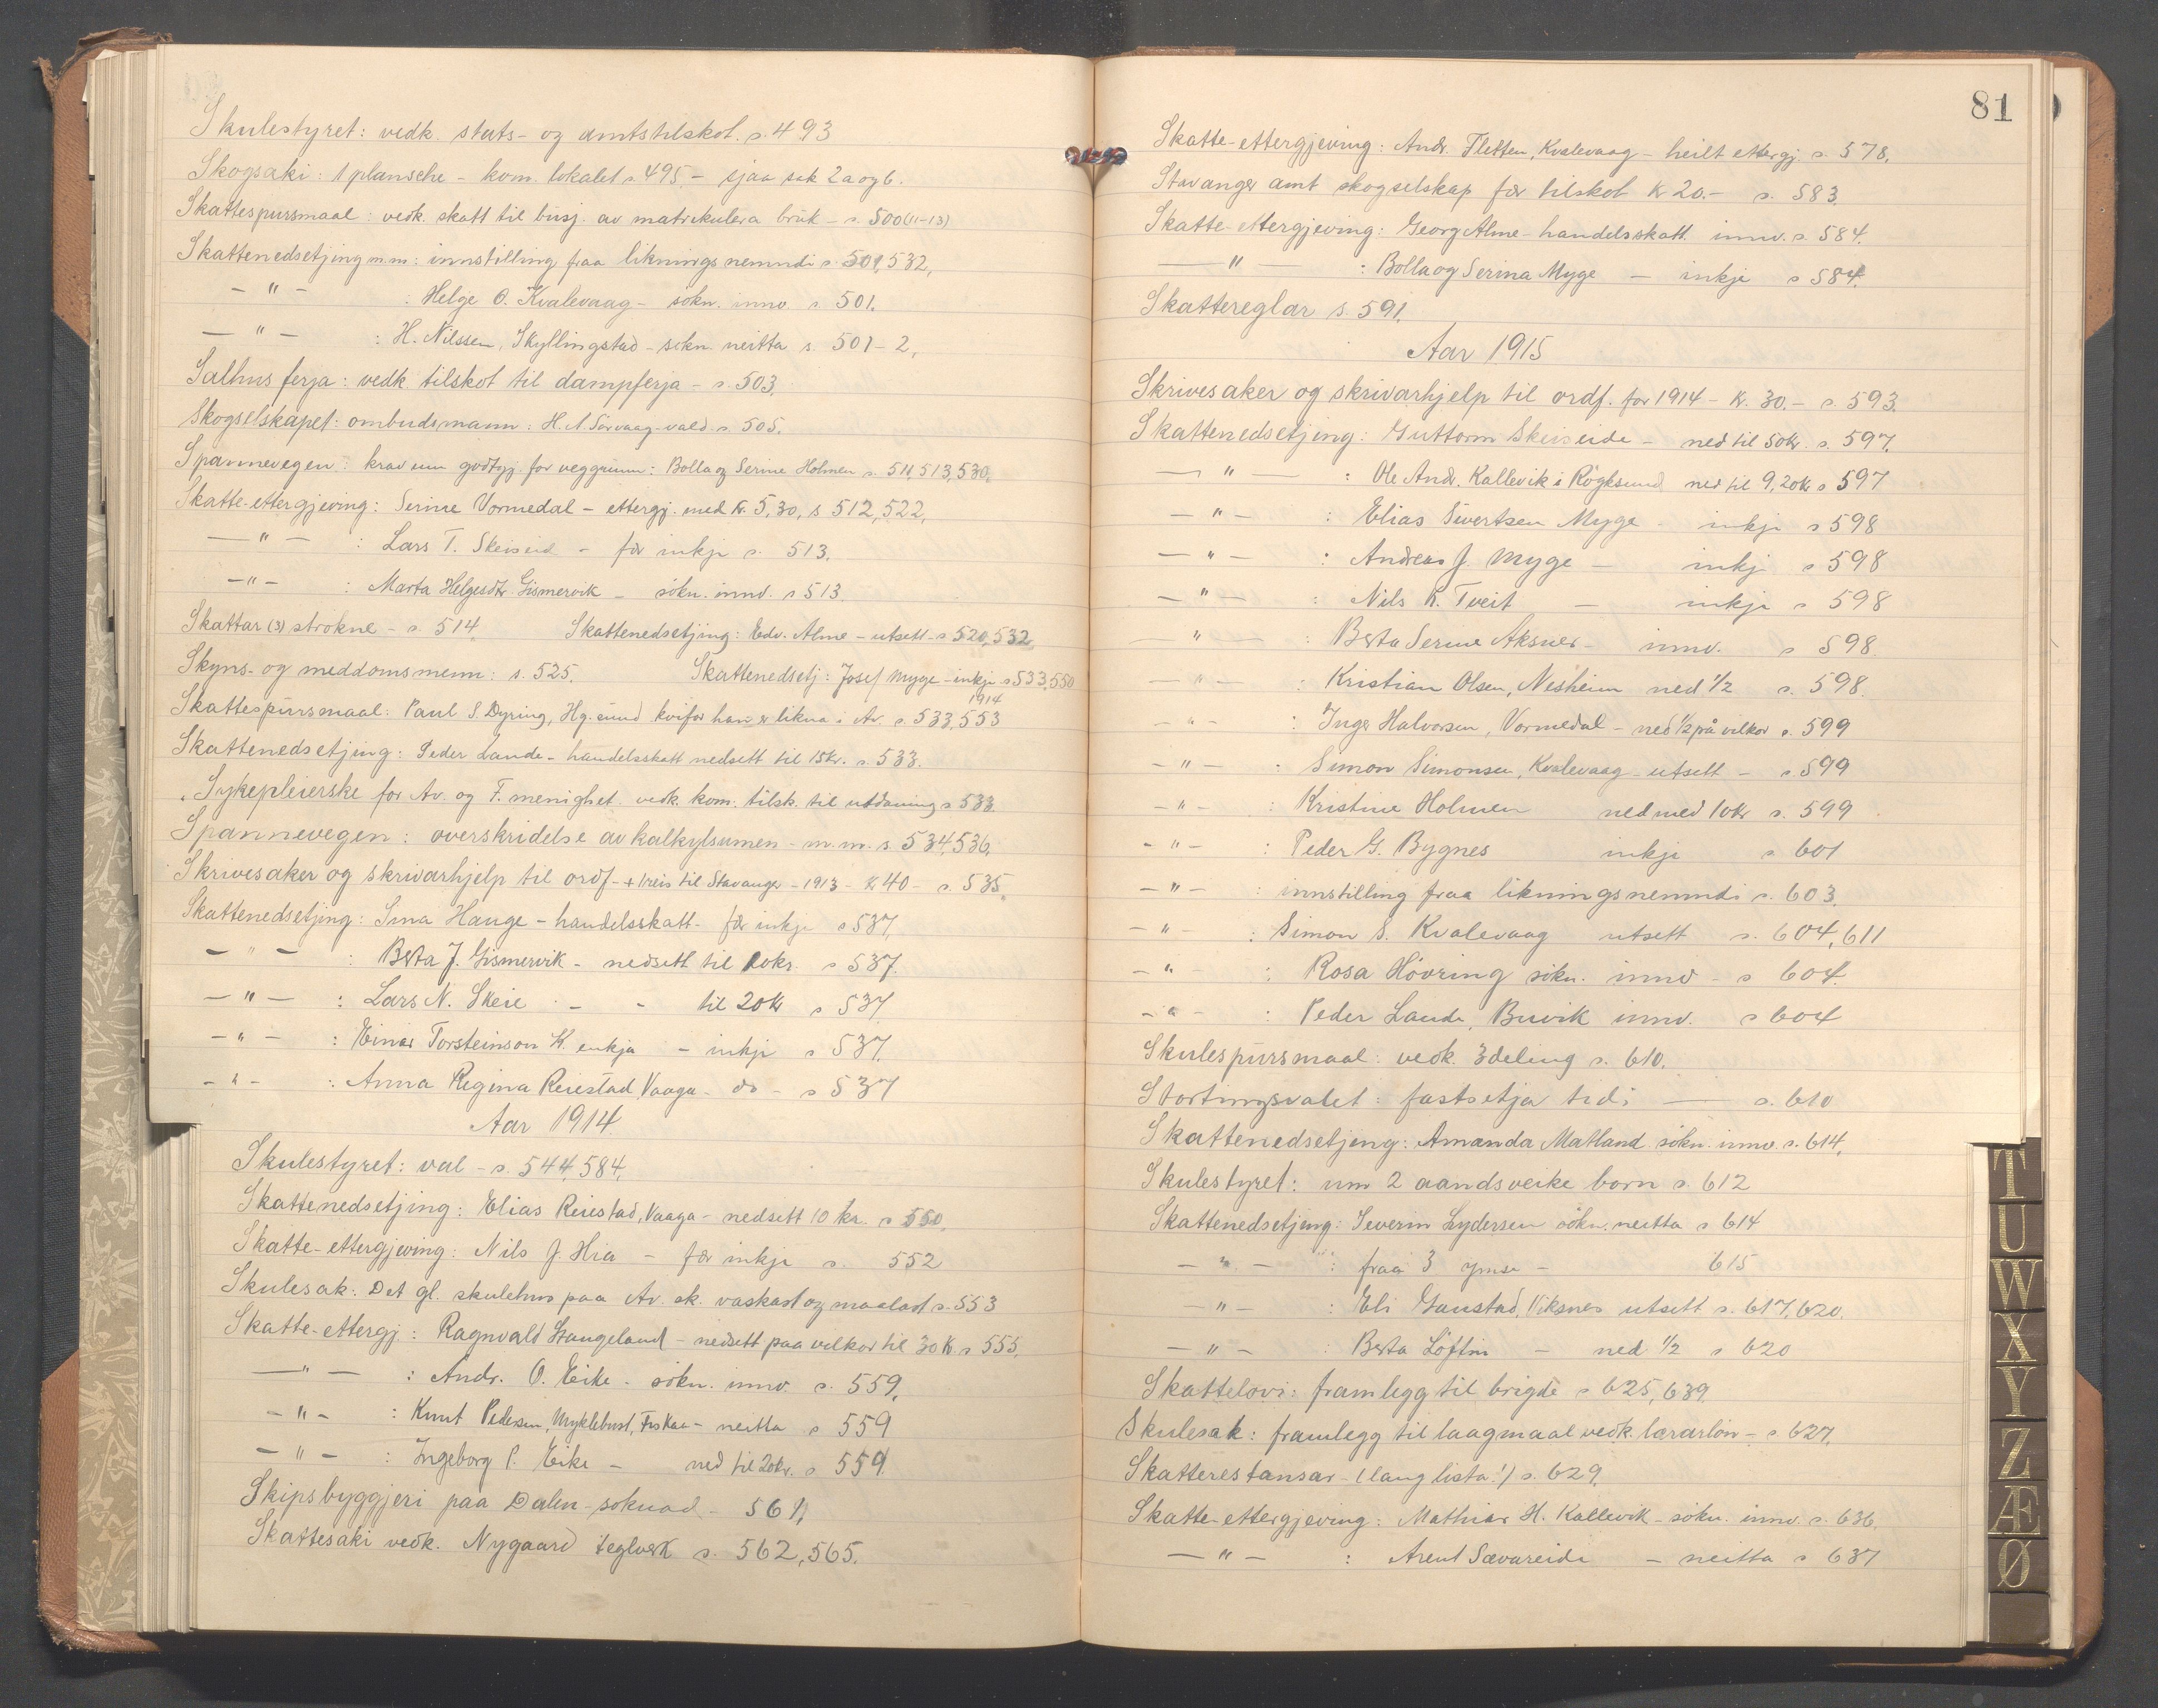 Skulestyret: vedk. stats- og amtstilskot. s. 493
Skogsaki: 1 plansche - kom. lokalet s. 495. - sjaa sak 2a og b.
Skattespursmaal: vedk. skatt til busj. av matrikulera bruk - s. 500 (11-13)
Skattenedsetjing m.m: innstilling fraa liknings nemndi s. 501, 532,
- " - : Helge O. Kvalevaag - søkn. innv. s. 501.
- " - : H. Nilssen, Skyllingstad - søkn. neitta s. 501-2,
Salhus ferja: vedk. tilskot til dampferja - s. 503.
Skogselskapet: ombudsmann: H. A Sørvaag-vald s. 505.
Spannevegen: krav um godtgj. for veggrunn: Bolla og Serine Holmen s. 511, 513, 530.
Skatte-ettergjeving: Serine Vormedal - ettergj. med kr. 5,30, s 512, 522,
- " - : Lars T. Skeiseid - fær inkje s. 513.
- " - : Marta Helgesdtr. Gismervik - søkn. innv. s 513.
Skattar (3) strokne - s. 514. Skattenedsetjing: Edv. Alme - utsett - s 520, 532
Skyns- og meddomsmenn: s. 525. Skattenedsetj: Josef Myge - inkje s 533, 550
Skattespursmaal: Paul S. Dyring, Hg.sund kvifor han er likna i Av. s. 533, 553 1914
Skattenedsetjing: Peder Lande - handelsskatt nedsett til 15 kr. s. 533.
Sykepleierske for Av. og F. menighet. vedk. kom. tilsk. til utdaning s 533.
Spannevegen: overskridelse av kalkylsumen - m.m. s 534, 536.
Skrivesaker og skrivarhjelp til ordf. - + 1 reis til Stavanger - 1913 - kr 40 - s. 535.
Skattenedsetjing: Sina Hauge - handelsskatt - fær inkje s 537.
- " - : Berta J. Gismervik - nedsett til 10 kr. s 537.
- " - : Lars N. Skeie - - til 20 kr s 537.
- " - : Einar Torsteinson K. enkja - inkje s 537.
- " - : Anna Regina Reiestad, Vaaga - do - s 537
Aar 1914.
Skulestyret: val - s. 544, 584.
Skattenedsetjing: Elias Reiestad, Vaaga - nedsett 10 kr. s 550.
Skatte-ettergjeving: Nils J. Hia - fær inkje s. 552
Skulesak: Det gl. skulehus paa Av. sk. vaskast og maalast s. 553
Skatte-ettergj: Ragnvald Stangeland - nedsett paa vilkor til 30 kr. s 555.
- " - : Andr. O. Eike - søkn. innv. s. 559.
- " - : Knut Pedersen, Myklebust, Fiskaa - neitta s 559
- " - : Ingeborg P. Eike - ned til 20 kr. s 559.
Skipsbyggjeri paa Dalen - søknad - 561,
Skattesaki vedk. Nygaard teglverk s. 562, 565.
81
Skatte-ettergjeving: Andr. Fletten, Kvalevaag - heilt ettergj. s. 578.
Stavanger amt skogselskap fær tilskot kr 20.- s. 583.
Skatte-ettergjeving: Georg Alme - handelsskatt innv. s. 584.
- " - : Bolla og Serina Myge - inkje s 584.
Skattereglar s. 591.
Aar 1915
Skrivesaker og skrivarhjelp til ordf. for 1914 - kr. 30.- s. 593.
Skattenedsetjing: Guttorm Skeiseide - ned til 50 kr. s. 597.
- " - : Ole Andr. Kallevik i Røgesund ned til 9,20 kr s 597
- " - : Elias Sivertsen Myge - inkje s 598
- " - : Andreas J. Myge - inkj s 598
- " - : Nils K. Tveit - inkje s 598
- " - : Berta Serine Aksnes - innv. s 598.
- " - : Kristian Olsen, Nesheim ned 1/2 s. 598.
- " - : Inger Halvorsen, Vormedal - ned 1/2 på vilkor s. 599
- " - : Simon Simonsen, Kvalevaag - utsett - s. 599
- " - : Kristine Holmen ned med 10 kr s. 599
- " - : Peder G. Bygnes inkje s. 601
- " - : innstilling fraa likningsnemndi s. 603.
- " - : Simon S. Kvalevaag utsett s. 604, 611
- " - : Rosa Høvring søkn. innv - s 604.
- " - : Peder Lande, Buvik innv. s 604
Skulespursmaal: vedk. 3deling s. 610.
Stortingsvalet: fastsetja tidi - s. 610
Skattenedsetjing: Amanda Matland søkn. innv. s. 614,
Skulestyret: um 2 aandsveike born s. 612
Skattenedsetjing: Severin Lydersen søkn. neitta s 614
- " - : fraa 3 ymse - 615
- " - : Eli Gaustad, Viksnes utsett s. 617, 620.
- " - : Berta Løftin - ned 1/2 s 620
Skattelovi: framlegg til brigde s 625, 639.
Skulesak: framlegg til laagmaal vedk. lærarløn - s 627.
Skatterestansar - (lang lista!) s. 629.
Skatte-ettergjeving: Mathias H. Kallevik - søkn. innv. s. 636.
- " - : Arent Sævareide - neitta s 637
T
U
W
X
Y
Z
Æ
Ø